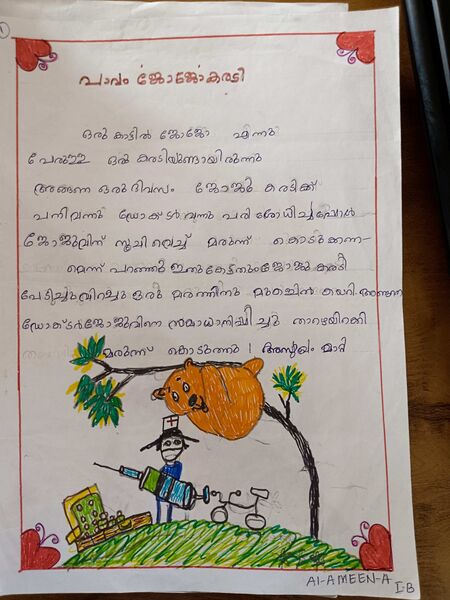 1
പാവം ജോജോകരടി
ഒരു കാട്ടിൽ ജോജോ എന്നു
പേരുള്ള ഒരു കരടിയുണ്ടായിരുന്നു
അങ്ങനെ ഒരു ദിവസം ജോജു കരടിക്ക്
പനിവന്നു ഡോക്ടർ വന്നു പരിശോധിച്ചപ്പോൾ
ജോജുവിന് സൂചിവെച്ച് മരുന്ന് കൊടുക്കണ-
മെന്ന് പറഞ്ഞു ഇതുകേട്ടതും ജോജു കരടി
പേടിച്ചുവിറച്ചു ഒരു മരത്തിനു മുകളിൽ കയറി. അങ്ങനെ
ഡോക്ടർ ജോജുവിനെ സമാധാനിപ്പിച്ചു താഴെയിറക്കി
മരുന്ന് കൊടുത്തു അസുഖം മാറ്റി
Al-AMEEN-A
I-B